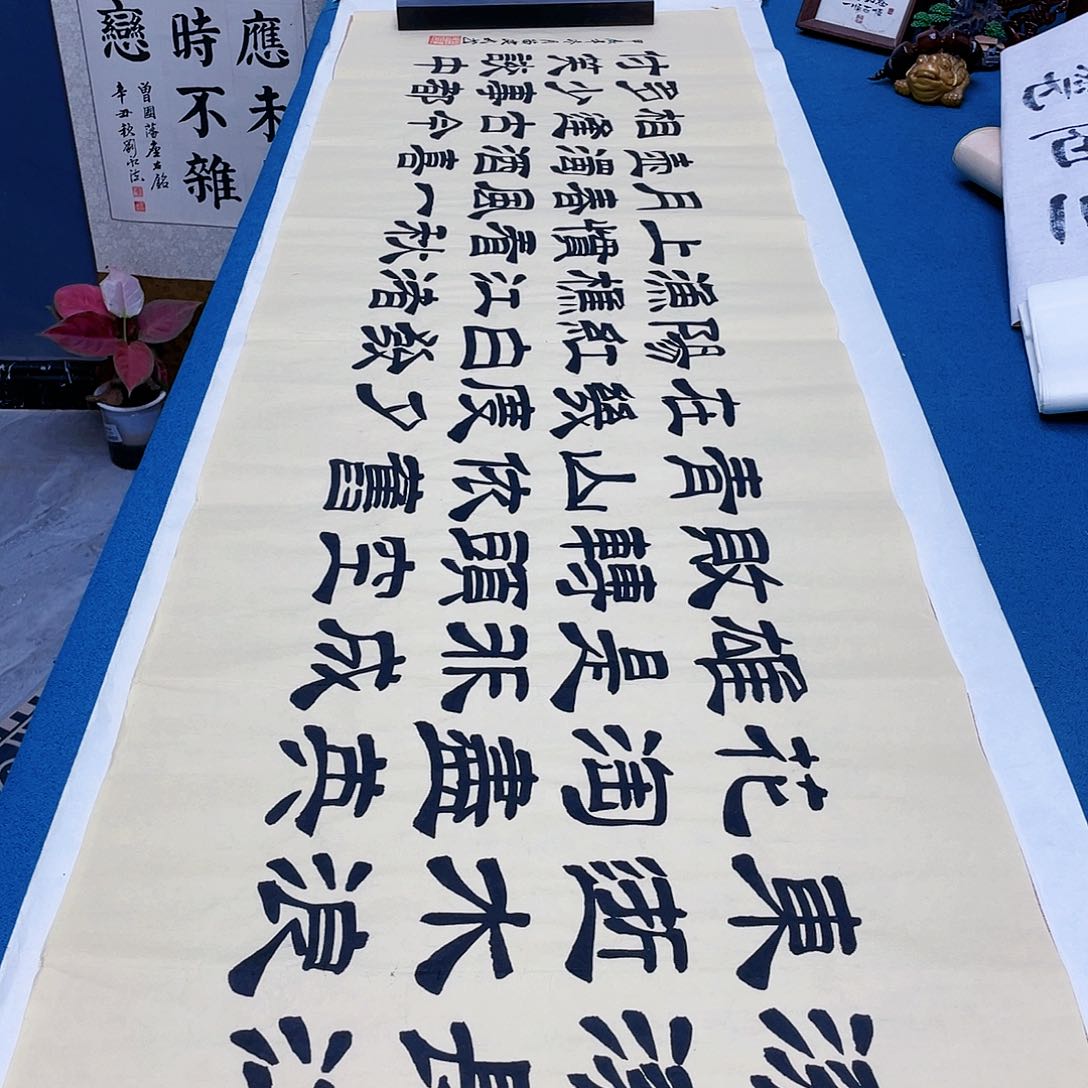 滾滾長江
東逝水浪
花淘盡英
雄是非成
敗轉頭空
青山依舊
在幾度夕
陽紅白發
漁樵江渚
上慣看秋
月春風一
壺濁酒喜
相逢古今
多少事都
付笑談中
應未
時不雜
戀
曾國藩座右銘
辛丑秋劉